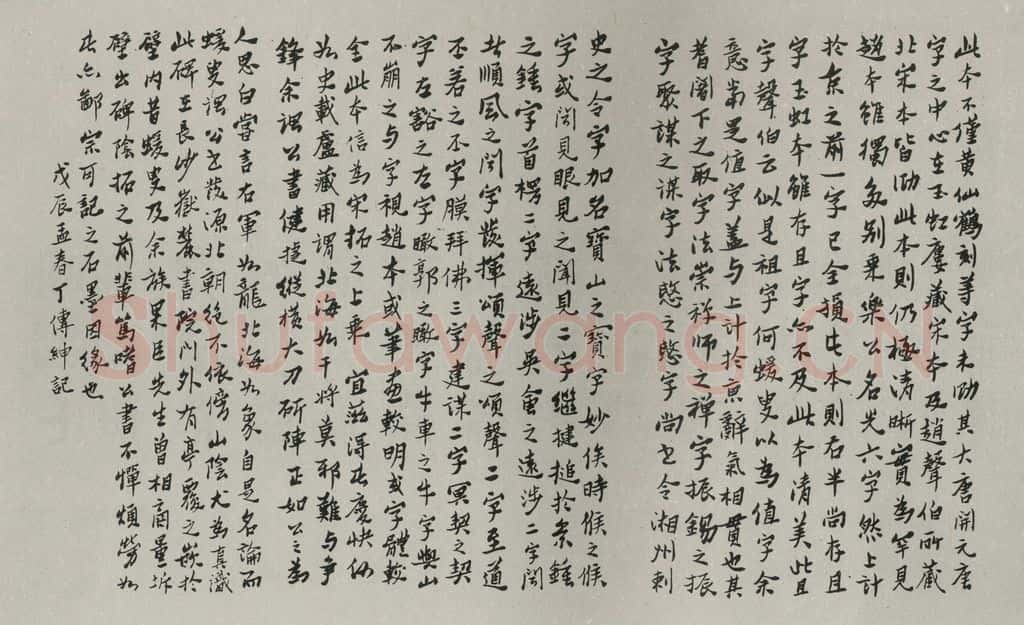 此本不僅黃仙鶴刻等字未泐其大唐開元唐
字之中心在玉虹廔藏宋本及趙聲伯所藏
北宋本皆泐此本則仍極清晰實為罕見
趙本雖獨多別乘樂公名光六字然上計
於京之前一字已全損此本則右半尚存且
字玉虹本雖存且字亦不及此本清美此且
字聲伯云似是祖字何蝯叟以為值字余
意當是值字蓋與上計於京辭氣相貫也其
昔闍下之取字法崇禪師之禪字振錫之振
字聚謀之謀字法愍之愍字尚書令湘州刺
史之令字加名寶山之寶字妙俟時候之候
字或聞見眼見之聞見二字繼揵搥於景鍾
之鍾字首楞二字遠涉吳會之遠涉二字聞
此順風之聞字發揮頌聲之頌聲二字至道
不若之不字膜拜佛三字建謀二字冥契之契
字左豁之左字瞰郭之瞰字牛車之牛字與山
不崩之与字視趙本或筆畫較明或字體較
全此本信為宋拓之上乘宜茲得此慶快何
如史載盧藏用謂北海如干將莫邪難与爭
鋒余謂公書健捷縱橫大刀斫陣正如公之為
人思白嘗言右軍如龍北海如象自是名論而
蝯叟謂公書發源北朝絕不依傍山陰尤為真識
此碑在長沙嶽麓書院門外有亭覆之嵌於
壁內昔蝯叟及余族果臣先生曾相商量拆
壁出碑陰拓之前輩篤嗜公書不憚煩勞如
此亦鄙宗可記之石墨因緣也
戊辰孟春丁傳紳記
Shufawang.CN